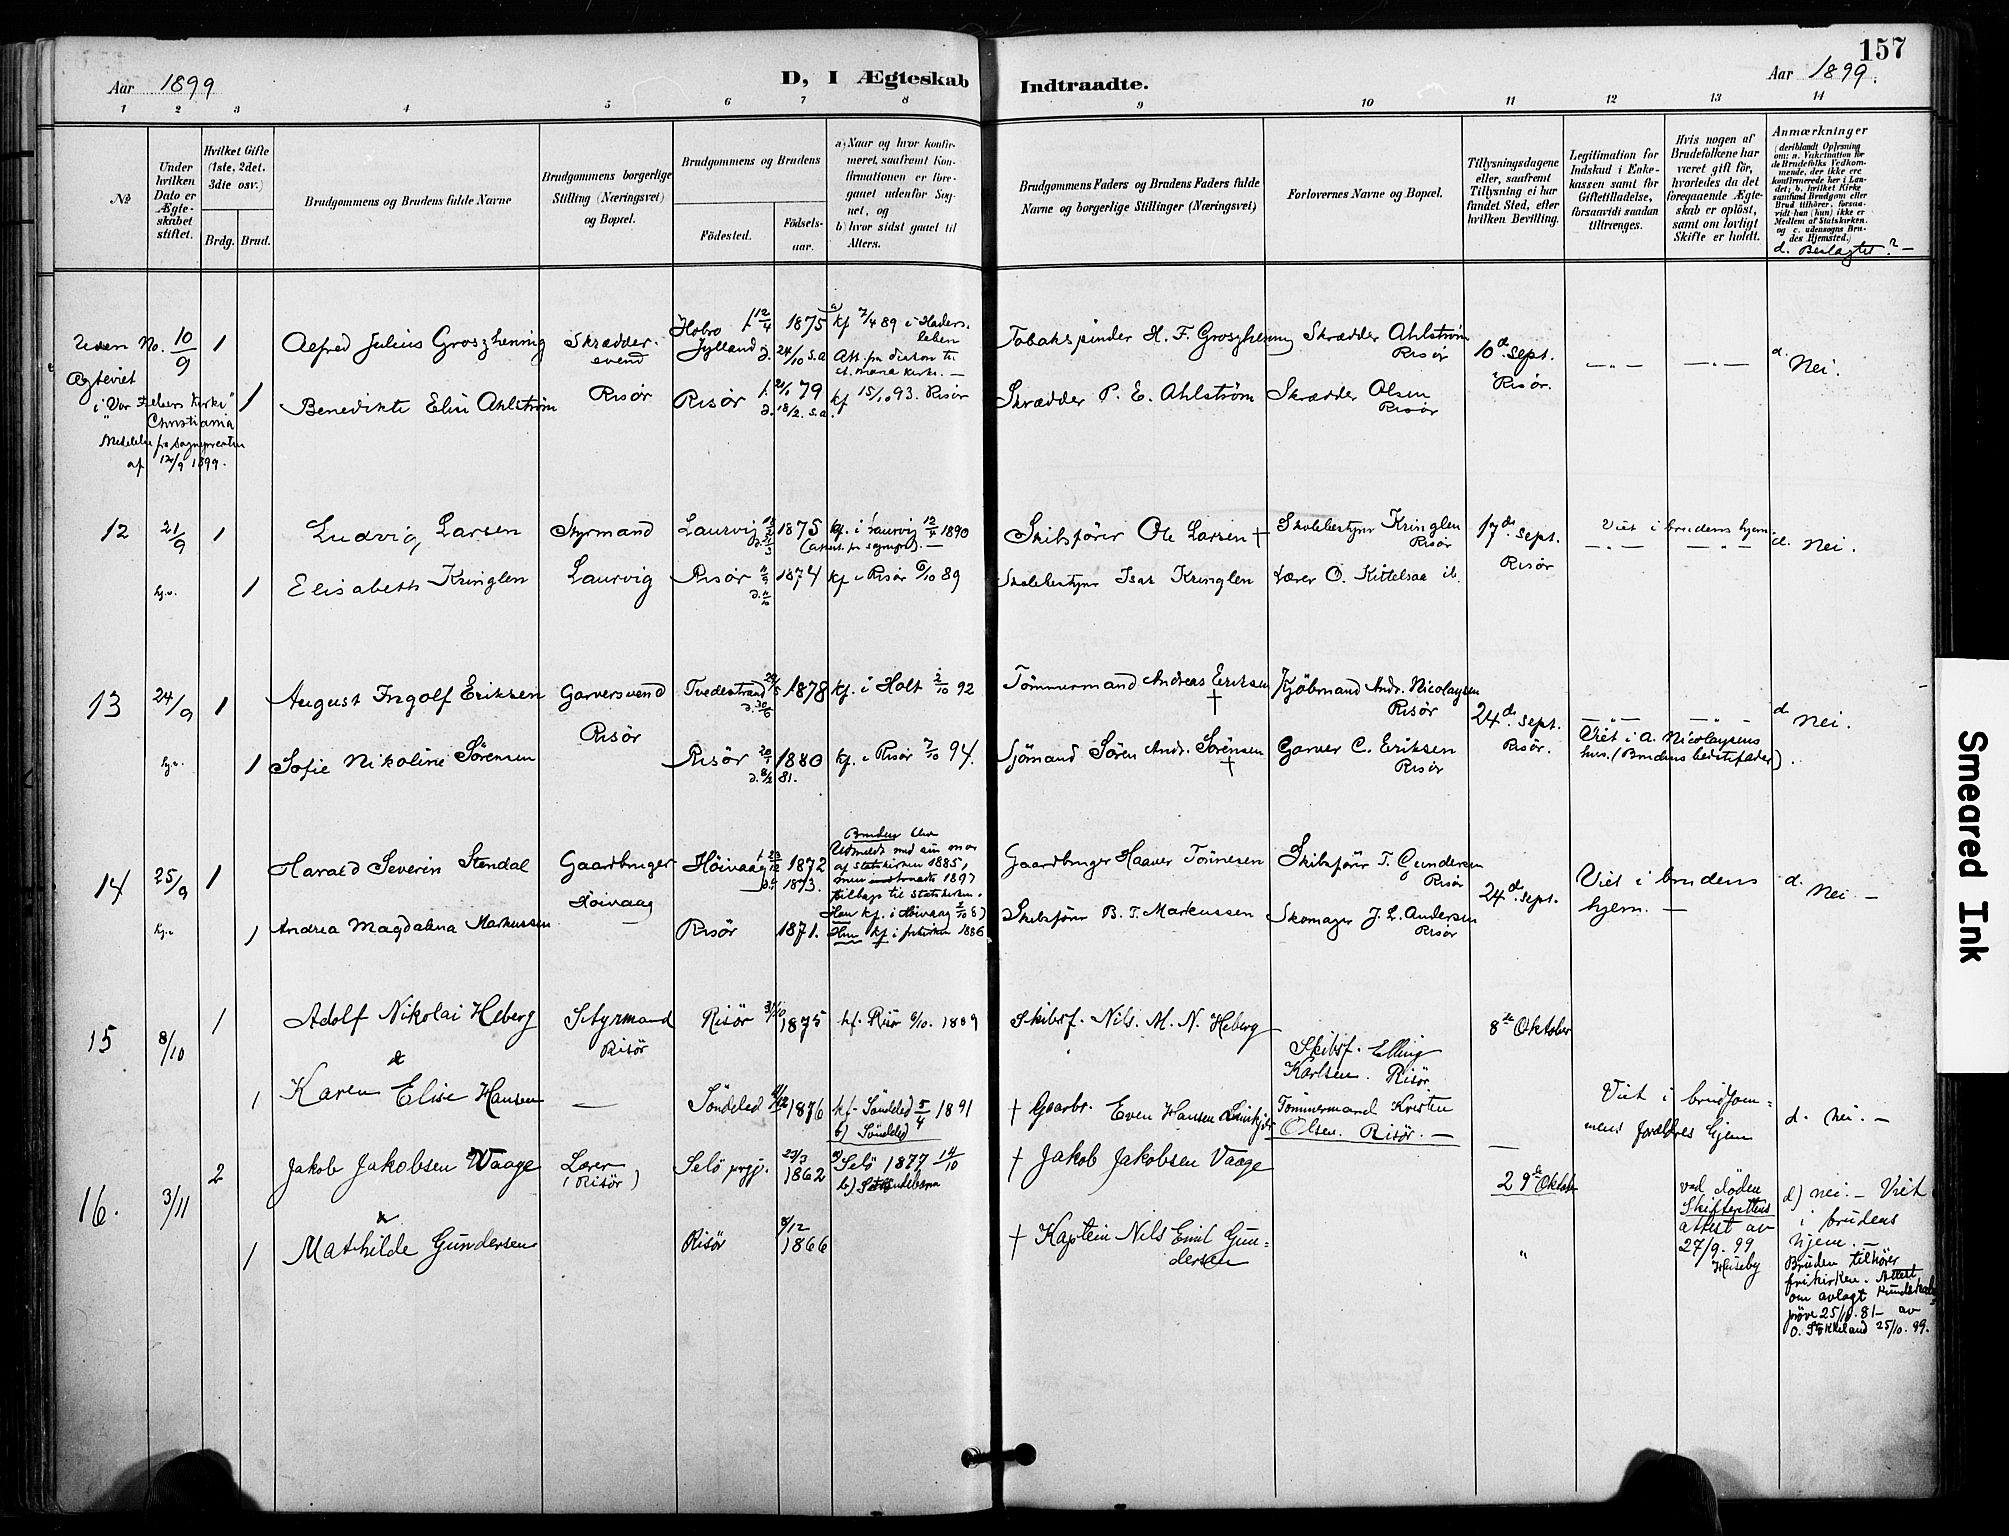 157
Aar 1899
D, I Ægteskab Indtraadte.
Aar 1899.
1 2 3 4 5 6 7 8 9 10 11 12 13 14
№
Under hvilken Dato er Ægteskabet stiftet.
Hvilket Gifte (1ste, 2det, 3die osv.)
Brdg. Brud.
Brudgommens og Brudens fulde Navne
Brudgommens borgerlige Stilling (Næringsvei) og Bopæl.
Brudgommens og Brudens
Födested.
Födselsaar.
a) Naar og hvor konfirmeret, saafremt Konfirmationen er foregaaet udenför Sognet, og
b) hvor sidst gaaet til Alters.
Brudgommens Faders og Brudens Faders fulde Navne og borgerlige Stillinger (Næringsvei)
Forlovernes Navne og Bopæl.
Tillysningsdagene eller, saafremt Tillysning ei har fundet Sted, efter hvilken Bevilling.
Legitimation for Indskud i Enkekassen samt for Giftetilladelse, forsaavidt saadan tiltrænges.
Hvis nogen af Brudefolkene har været gift för, hvorledes da det foregaaende Ægteskab er oplöst, samt om lovligt Skifte er holdt.
Anmærkninger
(deriblandt Oplysning om: a. Vakcination for de Brudefolks Vedkommende, der ikke ere konfirmerede her i Landet; b. hvilket Kirkesamfund Brudgom eller Brud tilhörer, forsaavidt han (hun) ikke er Medlem af Statskirken, og c. udensogns Brudes Hjemsted.)
d. Beslægtet? -
Uden No. 10/9 1 Alfred Julius Groszhennig Skræddersvend Risør
Hobro Jylland f. 12/4 1875 d. 24/10 s.a.
a kf 7/4 89 i Hadersleben
Att. fra diakon til St. Maria kirke. -
Tobakspinder H. F. Groszhennig
Skrædder Ahlström Risør
10de Sept. Risör.
d. Nei.
Ægteviet i "Vor Frelsers Kirke" Christiania
Meddelelse fra Sognepresten af 12/9 1899.
1 Benedikte Elise Ahlström Risør f. 21/1 79 d. 18/2 s.a. kf 15/10 93. Risør
Skrædder P. E. Ahlström
Skrædder Olsen Risør
12 21/9 1 Ludvig Larsen Styrmand Laurvig
Laurvig 1875 kf. i Laurvig 12/4 1890
Skibsfører Ole Larsen †
Skolebestyrer Kringlen Risør
17de Sept. Risör
Viet i brudens hjem.
d. Nei.
hj.v. 1 Elisabeth Kringlen Risør 1874 kf i Risør 6/10 89
Skolebestyrer Isak Kringlen
Lærer O. Kittelsaa ib.
13 24/9 1 August Ingolf Eriksen Garversvend Risør
Tvedestrand 1878 d. 30/6 kf. i Holt 2/10 92
Tømmermand Andreas Eriksen †
Kjøbmand Andr. Nicolaysen Risør
24de Sept. Risør.
Viet i A. Nicolaysens hus. (Brudens bedstefader).
d. Nei.
hj.v. 1 Sofie Nikoline Sørensen Risør 1880 81. kf. i Risør 7/10 94.
Sjømand Søren Andr. Sørensen †
Garver C. Eriksen Risør
14 25/9 1 Harald Severin Stendal Gaardbruger Høivaag
Høivaag 1872 1873.
Bruden blev Udmeldt med sin mor af statskirken 1885, men indtraadte 1897 tilbage til statskirken.
Han kf. i Høivaag 2/10 87
Hun kf. i frikirken 1886
Gaardbruger Haaver Tønnesen
Skibsfører T. Gundersen Risør
24de Sept.
Viet i brudens hjem. -
d. Nei. -
hj.v 1 Andrea Magdalena Markussen Risør 1871.
Skibsfører B. T. Markussen
Skomager J. L. Andersen Risør
15 8/10 1 Adolf Nikolai Heberg Styrmand Risør
Risør 31/10 1875 kf. Risør 6/10. 1889
Skibsf. Nils M. N. Heberg
Skibsf. Elling Karlsen. Risør
8de Oktober
&
1 Karen Elise Hansen - Söndeled 1876 kf. Söndeled 5/4 1891
b) Söndeled
† Gaarbr. Even Hansen
Tömmermand Kristen Olsen. Risör. -
Viet i brudgommens forældres hjem
d. nei. -
16. 3/11 2 Jakob Jakobsen Waage Lærer (Risör)
Selö prgj. 23/3 1862 a) Selö 1877 14/10
† Jakob Jakobsen Vaage
29de Oktober
ved döden Skifterettens attest av 27/9. 99 Huseby
d) nei. - Viet i brudens hjem. -
Bruden tilhörer frikirken. Attest om avlagt Kundskabspröve 25/10. 81 - av O. Stökkeland 25/10. 99.
&
1 Mathilde Gundersen Risör 8/12 1866
† Kaptein Nils Emil Gundersen
"
Smeared Ink